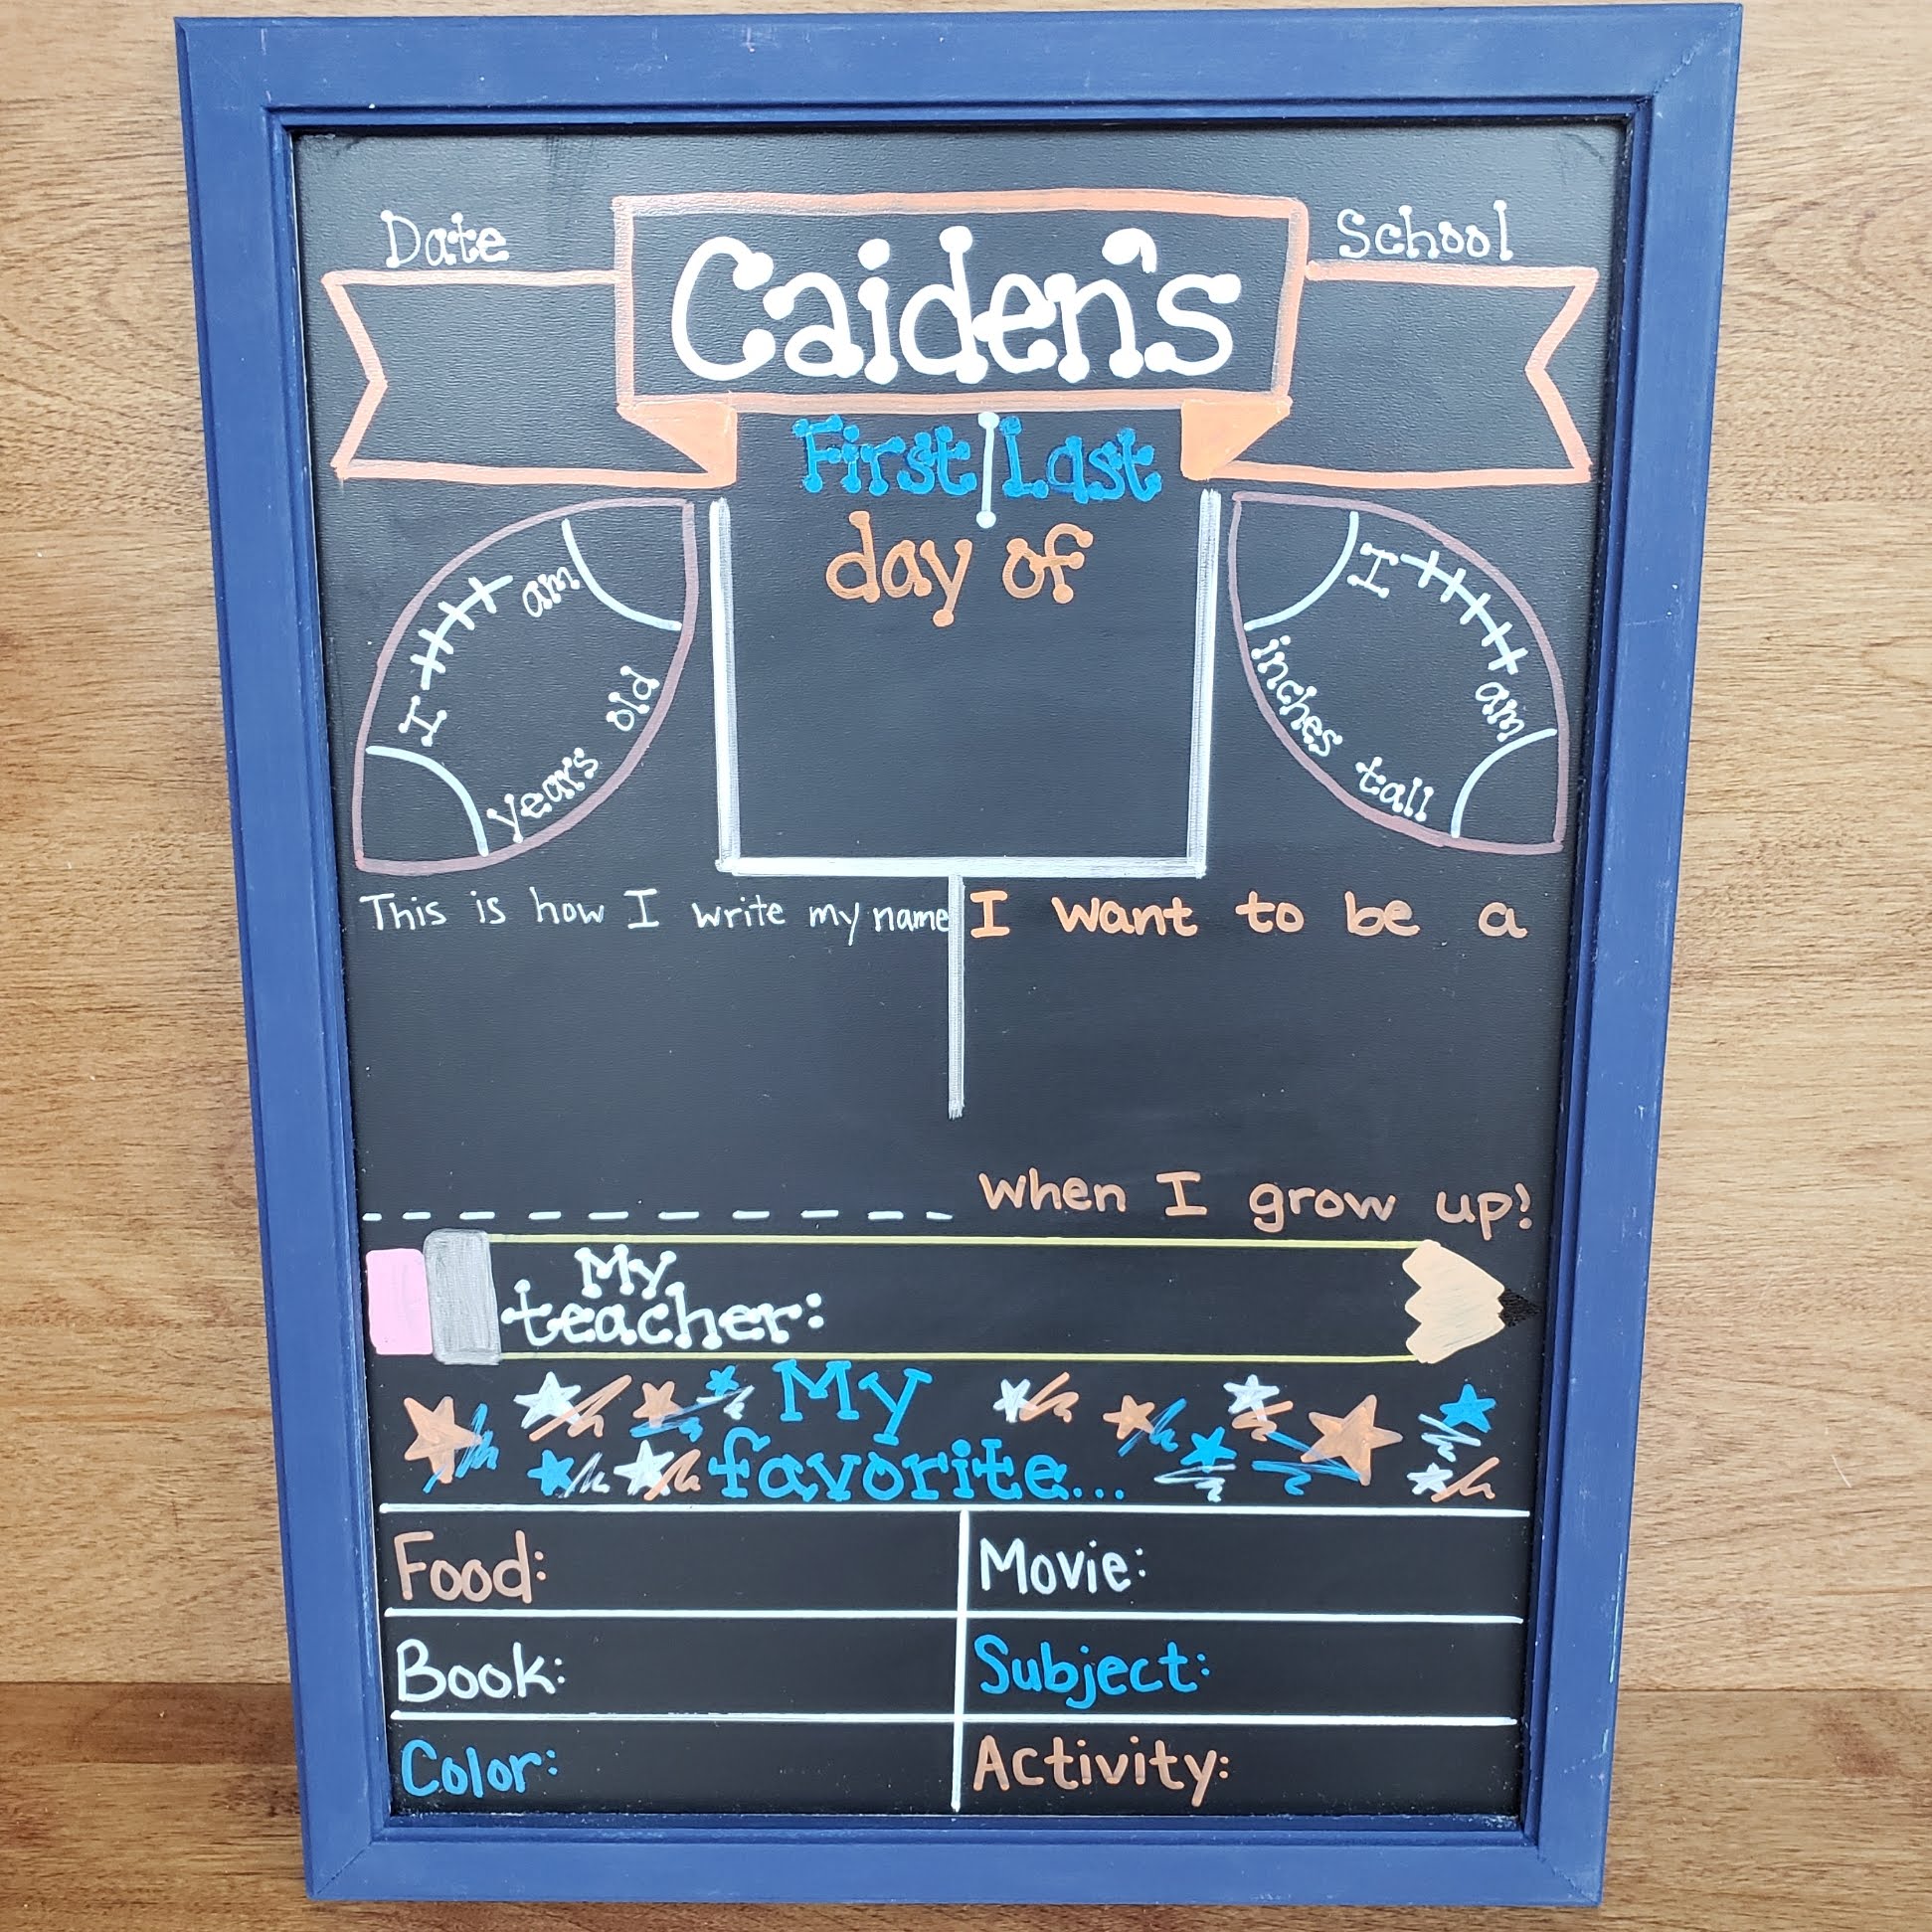 Date
School
Caiden's
First|Last
day of
I am
years old
I am
inches tall
This is how I write my name
I want to be a
when I grow up!
My
teacher:
My
favorite...
Food:
Movie:
Book:
Subject:
Color:
Activity: